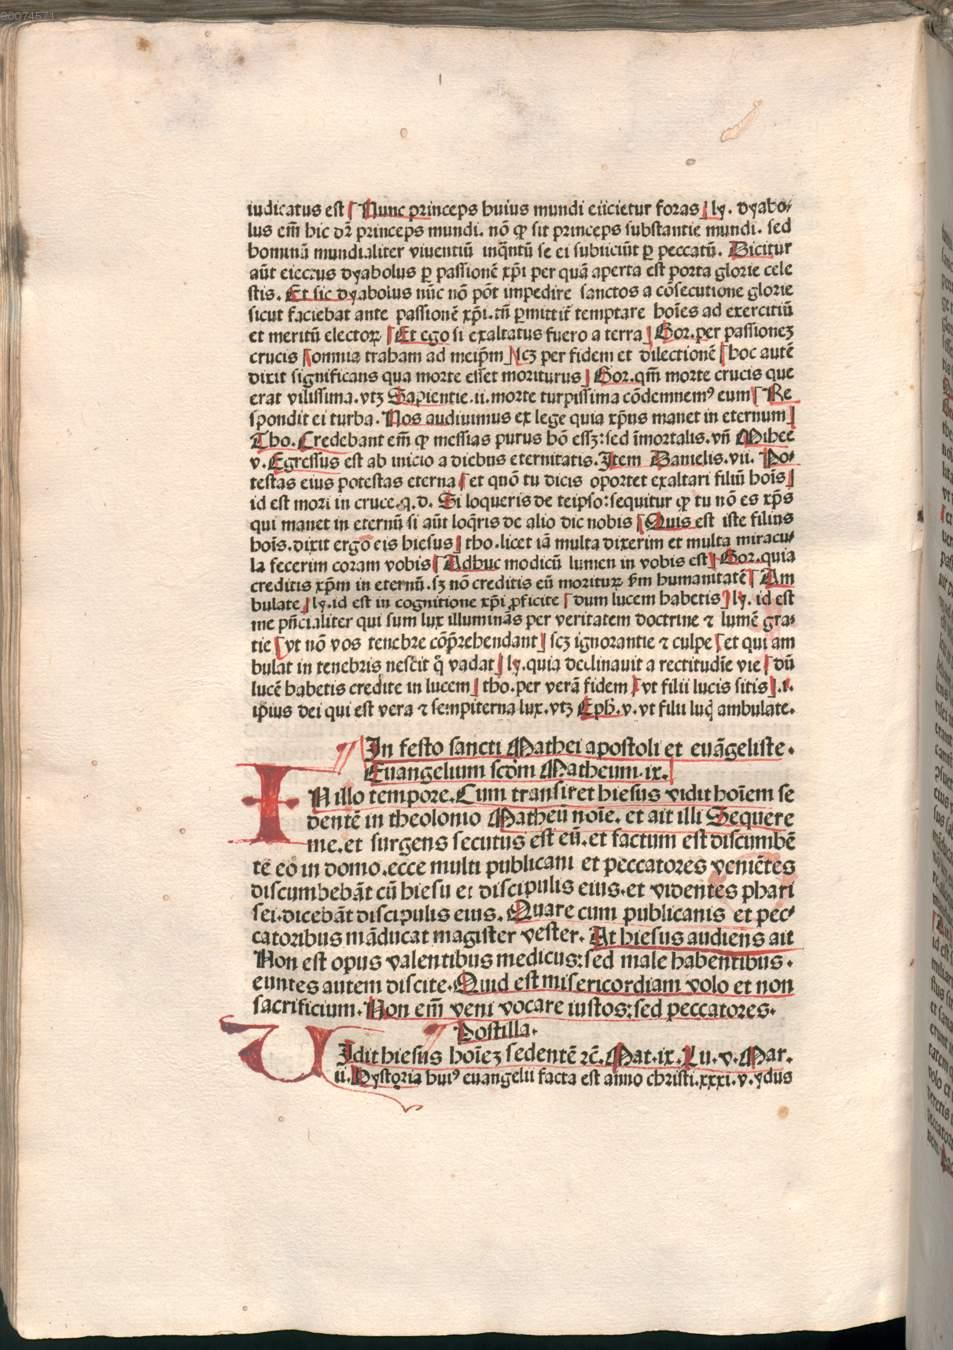 iudicatus est Nunc princeps huius mundi eiicietur foras ly. dyabo⸗
lus em̄ hic dr̄ princeps mundi. nō ꝙ sit princeps substantie mundi. sed
hominū mundialiter viuentiū inq̄ntū se ei subiiciūt ꝑ peccatū. Dicitur
aūt eiectus dyabolus ꝑ passionē xp̄i per quā aperta est porta glorie cele
stis. Et sic dyabolus nūc nō pōt impedire sanctos a cōsecutione glorie
sicut faciebat ante passionē xp̄i. tn̄ ꝑmittit̄ temptare hoīes ad exercitiū
et meritū electoꝝ Et ego si exaltatus fuero a terra Gor. per passionez
crucis omnia traham ad meip̄m scz per fidem et dilectionē hoc autē
dixit significans qua morte esset moriturus Gor. qm̄ morte crucis que
erat vilissima. vtz Sapientie. ii. morte turpissima cōdemnemꝰ eum Re
spondit ei turba. Nos audiuimus ex lege quia xp̄ns manet in eternum
Tho. Credebant em̄ ꝙ messias purus hō essz: sed īmortalis. vn̄ Mihee
v. Egressus est ab inicio a diebus eternitatis. Item Danielis. vii. Po⸗
testas eius potestas eterna et qnō tu dicis oportet exaltari filiū hoīs
id est mori in cruce. q. d. Si loqueris de teipso: sequitur ꝙ tu nō es xp̄s
qui manet in eternū si aūt loq̄ris de alio dic nobis Quis est iste filius
hoīs. dixit ergo eis hiesus tho. licet iā multa dixerim et multa miracu⸗
la fecerim coram vobis Adhuc modicū lumen in vobis est Gor. quia
creditis xp̄m in eternū. sz nō creditis eū morituꝝ ẜm humanitatē Am
bulate ly. id est in cognitione xp̄i ꝓficite dum lucem habetis ly. id est
me pn̄cialiter qui sum lux illuminās per veritatem doctrine ⁊ lumē gra⸗
tie vt nō vos tenebre cōp̄rehendant scz ignorantie ⁊ culpe et qui am
bulat in tenebris nescit q̄ vadat ly. quia declinauit a rectitudīe vie dū
lucē habetis credite in lucem tho. per verā fidem vt filii lucis sitis .i.
ip̄ius dei qui est vera ⁊ sempiterna lux. vtz Eph. v. vt filii luc̄ ambulate.
In festo sancti Mathei apostoli et euāgeliste.
Euangelium scd̄m Matheum. ix.
IN illo tempore. Cum transiret hiesus vidit hoīem se
dentē in theolonio Matheū noīe. et ait illi Sequere
me. et surgens secutus est eū. et factum est discumbē
te eo in domo. ecce multi publicani et peccatores veniētes
discumbebāt cū hiesu et discipulis eius. et videntes phari
sei. dicebāt discipulis eius. Quare cum publicanis et pec⸗
catoribus māducat magister vester. At hiesus audiens ait
Non est opus valentibus medicus: sed male habentibus.
euntes autem discite. Quid est misericordiam volo et non
sacrificium. Non em̄ veni vocare iustos: sed peccatores.
Postilla.
VIdit hiesus hoīez sedentē ⁊c̄. Mat. ix. Lu. v. Mar.
ii. Hystoria huiꝰ euangelii facta est anno christi. xxxi. v. ydus